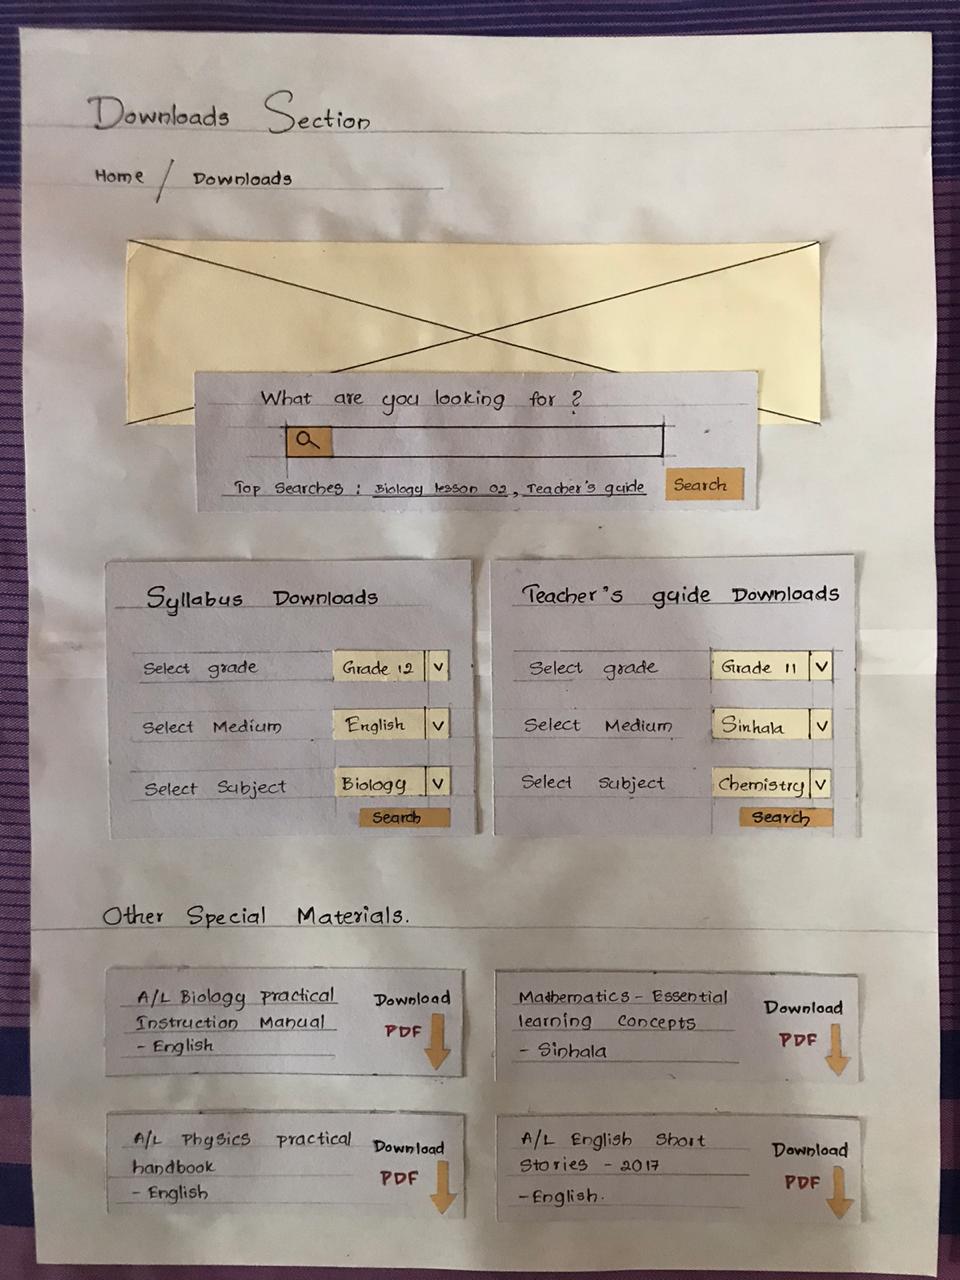 Downloads Section
Home / Downloads
What are you looking for ?
Top Searches : Biology lesson 02, Teacher's guide
Search
Syllabus Downloads
Select grade
Grade 12
V
Select Medium
English
V
Select Subject
Biology
V
Search
Teacher's guide Downloads
Select grade
Grade 11
V
Select Medium
Sinhala
V
Select Subject
Chemistry
V
Search
Other Special Materials.
A/L Biology practical
Instruction Manual
- English
Download
PDF
Mathematics - Essential
learning concepts
- Sinhala
Download
PDF
A/L Physics practical
handbook
- English
Download
PDF
A/L English Short
Stories - 2017
- English.
Download
PDF